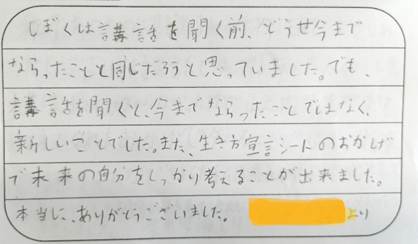 ぼくは講話を聞く前、どうせ今まで
ならったことと同じだろうと思っていました。でも、
講話を聞くと、今までならったことではなく、
新しいことでした。また、生き方宣言シートのおかげ
で未来の自分をしっかり考えることが出来ました。
本当に、ありがとうございました。 より